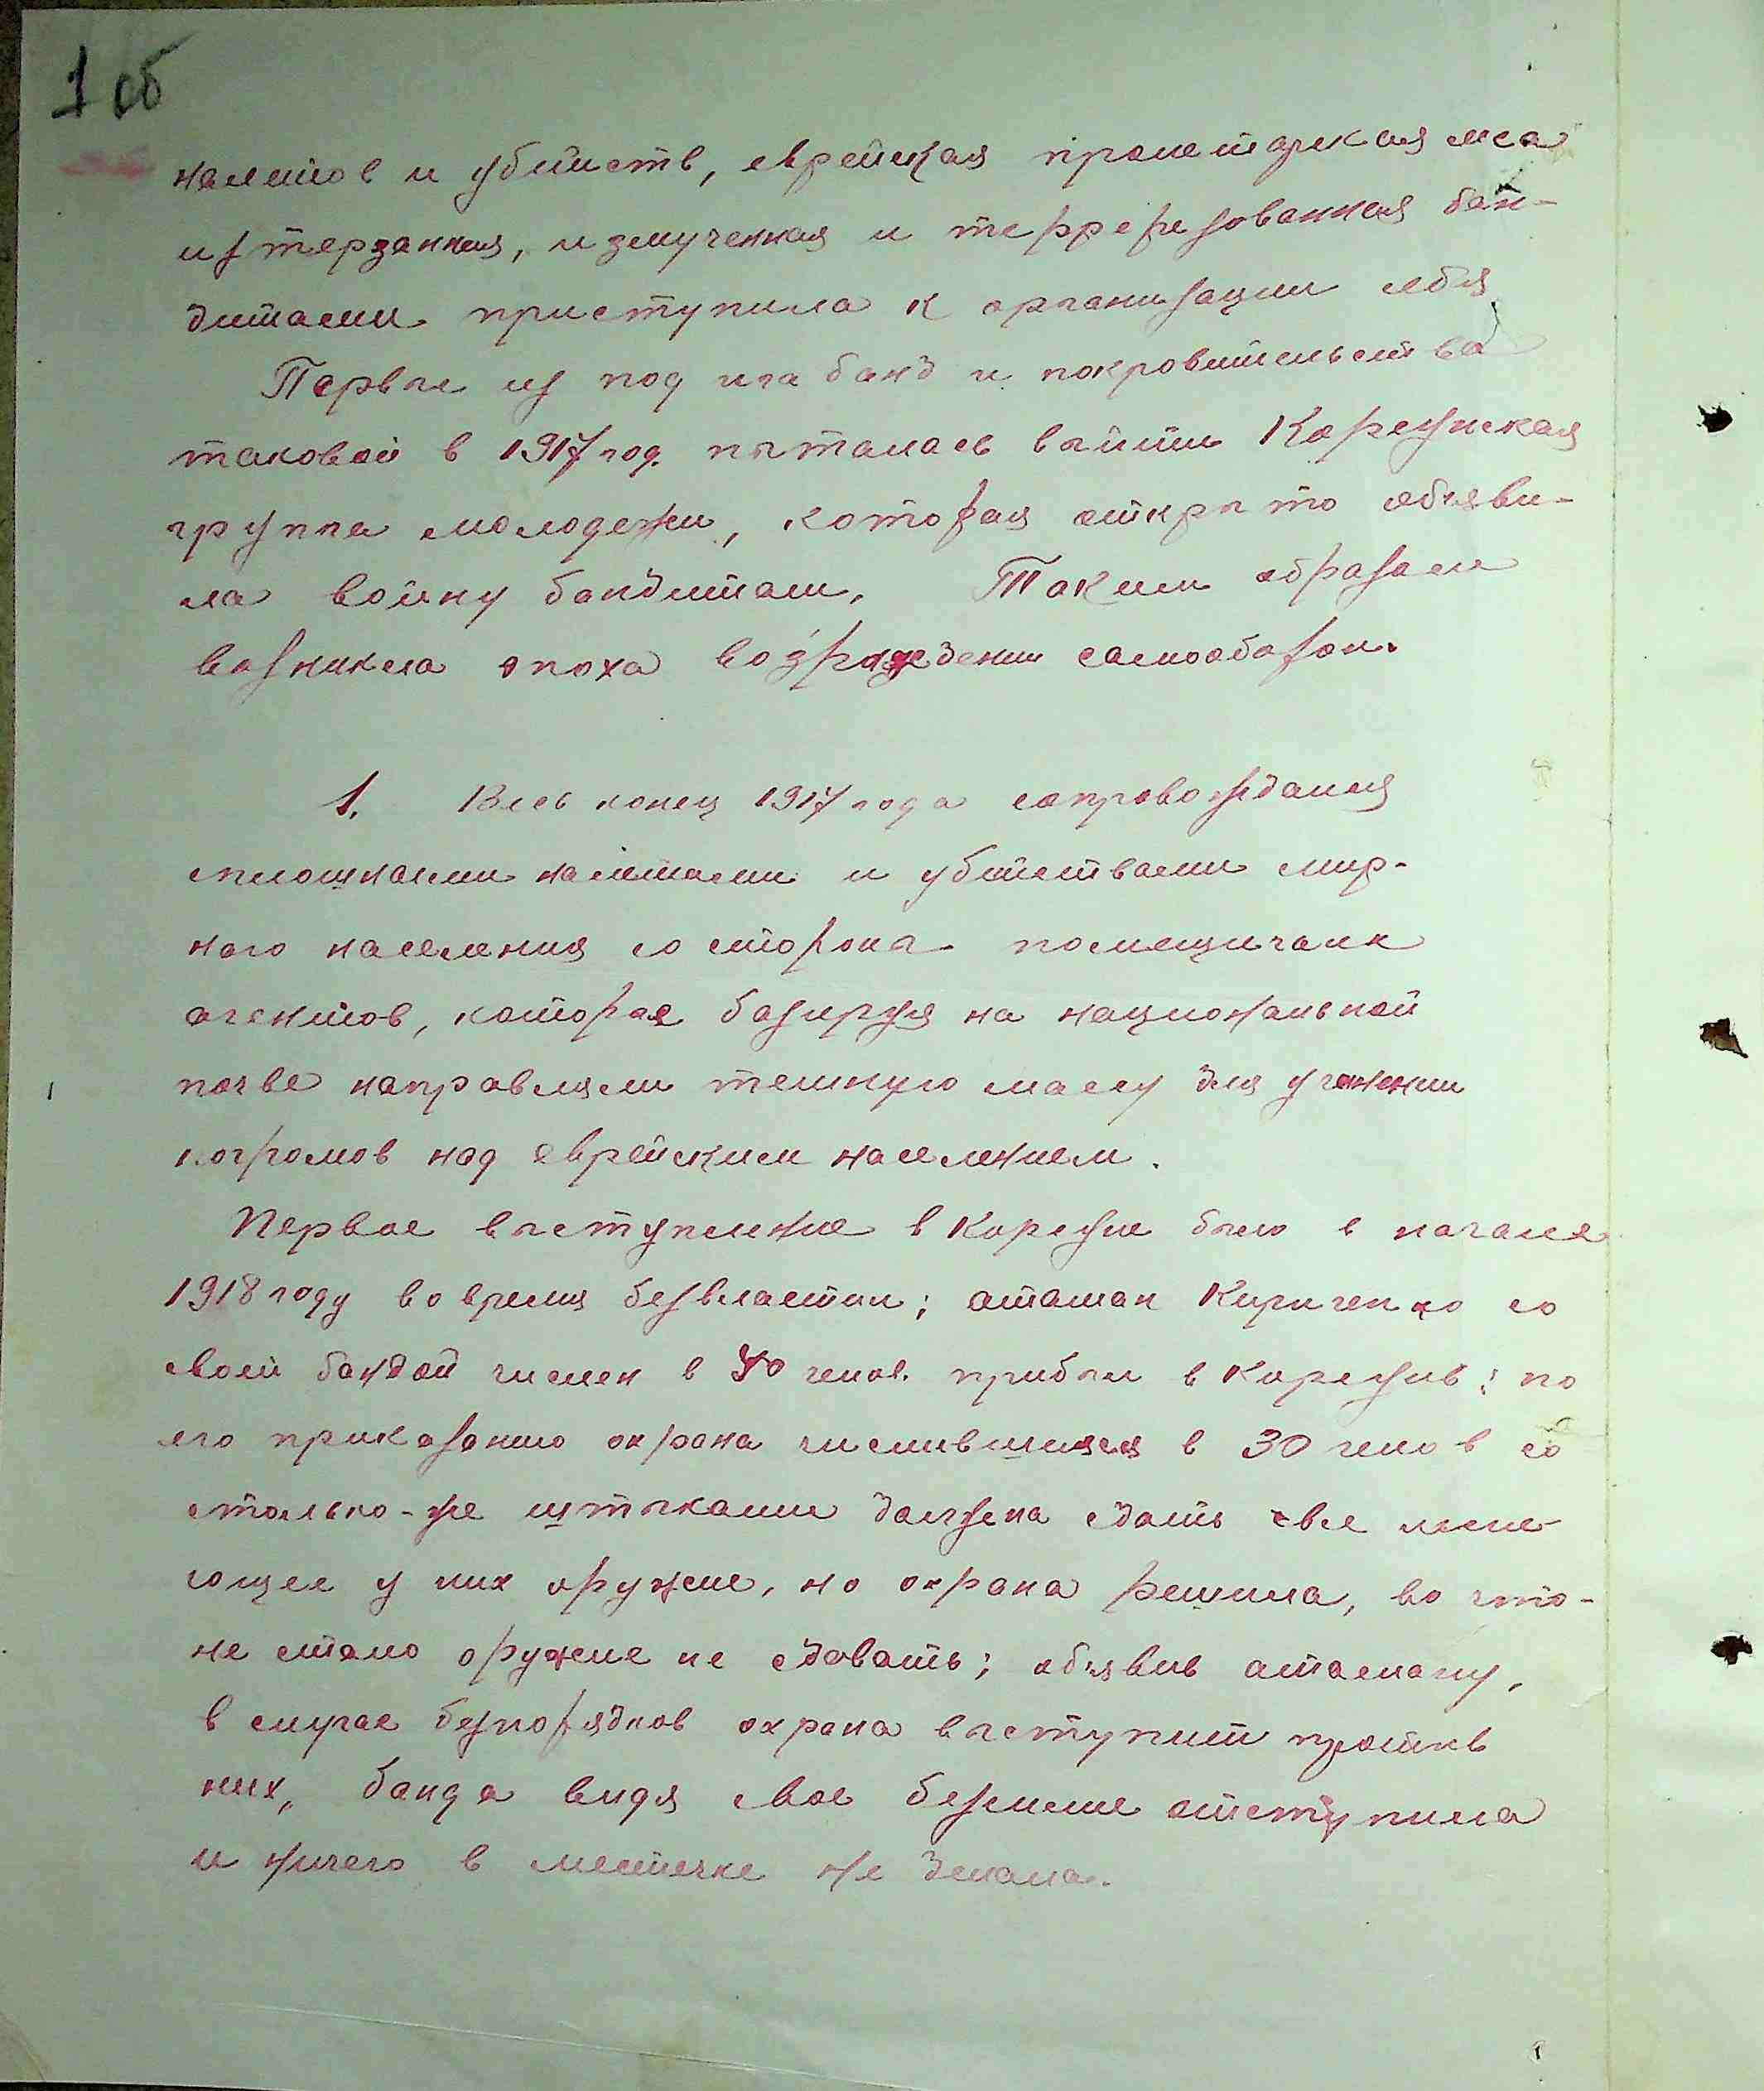 1 об
налетов и убийств, еврейская пролетарская мса
изтерзанная, измученная и терреризованная бан-
дитами приступила к организации себя
Первые из под ига банд и покровительства
таковой в 1917 год. пыталась выйти Корсунская
группа молодежи, которая открыто обяви-
ла войну бандитам. Таким образом
возникла эпоха самообороны.
1. Весь конец 1917 года сопровождался
сплошными налетами и убийствами мир-
ного населения со стороны помещичьих
агентов, которые базируя на национальной
почве направляли темную массу для учинении
погромов над еврейским населением.
Первое выступление в Корсуне было в начале
1918 году во время безвластии; атаман Кириченко со
своей бандой числен в 40 челов. прибыл в Корсунь; по
его приказанию охрана числившияся в 30 челов со
столько-же штыками должна сдать все имее-
ющее у них оружие, но охрана решила, во что-
не стало оружие не сдавать; обявив атаману,
в случае безпорядков охрана выступит против
них, банда видя свое безсилие отступила
и ничего в местечке не делала.